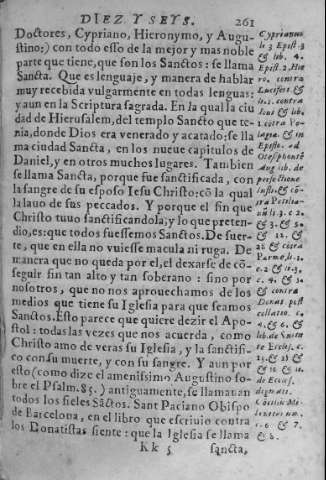 DIEZ Y SEYS. 261
Doctores, Cypriano, Hieronymo, y Augu-
stino;) con todo esso de la mejor y mas noble
parte que tiene, que son los Sanctos: se llama
Sancta. Que es lenguaje, y manera de hablar
muy recebida vulgarmente en todas lenguas:
y aun en la Scriptura sagrada. En la qual la ciu
dad de Hierusalem, del templo Sancto que te-
nia, donde Dios era venerado y acatado; se lla
ma ciudad Sancta, en los nueve capitulos de
Daniel, y en otros muchos lugares. Tambien
se llama Sancta, porque fue sanctificada, con
la sangre de su esposo Iesu Christo: cõ la qual
la lauo de sus peccados. Y porque el fin que
Christo tuuo sanctificandola; y lo que preten-
dio, es: que todos fuessemos Sanctos. De suer-
te, que en ella no vuiesse macula ni ruga. De
manera que no queda por el, el dexarse de cõ-
seguir fin tan alto y tan soberano: sino por
nosotros, que no nos aprouechamos de los
medios que tiene su Iglesia para que seamos
Sanctos. Esto parece que quiere dezir el Apo-
stol: todas las vezes que nos acuerda, como
Christo amo de veras su Iglesia, y la sanctifi-
co con su muerte, y con su sangre. Y aun por
esto (como dize el amenissimo Augustino so-
bre el Psalm. 85.) antiguamente, se llamauan
todos los fieles Sãctos. Sant Paciano Obispo
de Barcelona, en el libro que escriuio contra
los Donatistas siente: que la Iglesia se llama
Kk 5 sancta,
Cyprianus
li. 3 Epist. 3
& lib. 4.
Epist. 2. Hie
ro. contra
Lucifers &
li. 1. contra
Ioui & lib.
1. contra Pe-
lagia. & in
Epist. ad
Aug lib. de
perfectione
iusti. & cõ-
tra Petilia-
& 3. & 50.
& contra
Donat. post
collatio. c.
4. & 6. &
de Eccles.
dogmat.
c. 6 & 7.
& 8.